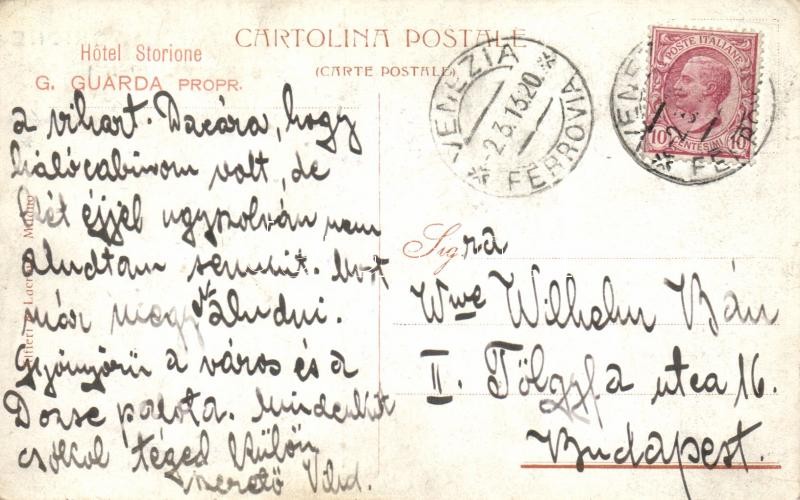 Hôtel Storione
G. GUARDA PROPR.
CARTOLINA POSTALE
(CARTE POSTALE)
VENEZIA
2.3.13.20
FERROVIA
POSTE ITALIANE
10 CENTESIMI 10
a vihart. Dacára, hogy
hálócabinom volt, de
két éjjel ugyszolván nem
aludtam semmit. Most
már megy aludni.
Gyönyörü a város és a
Dozse palota. Mindenkit
csókol téged külön
szerető
Sigra
Wwe Wilhelm Bán
II. Tölgyfa utca 16.
Budapest.